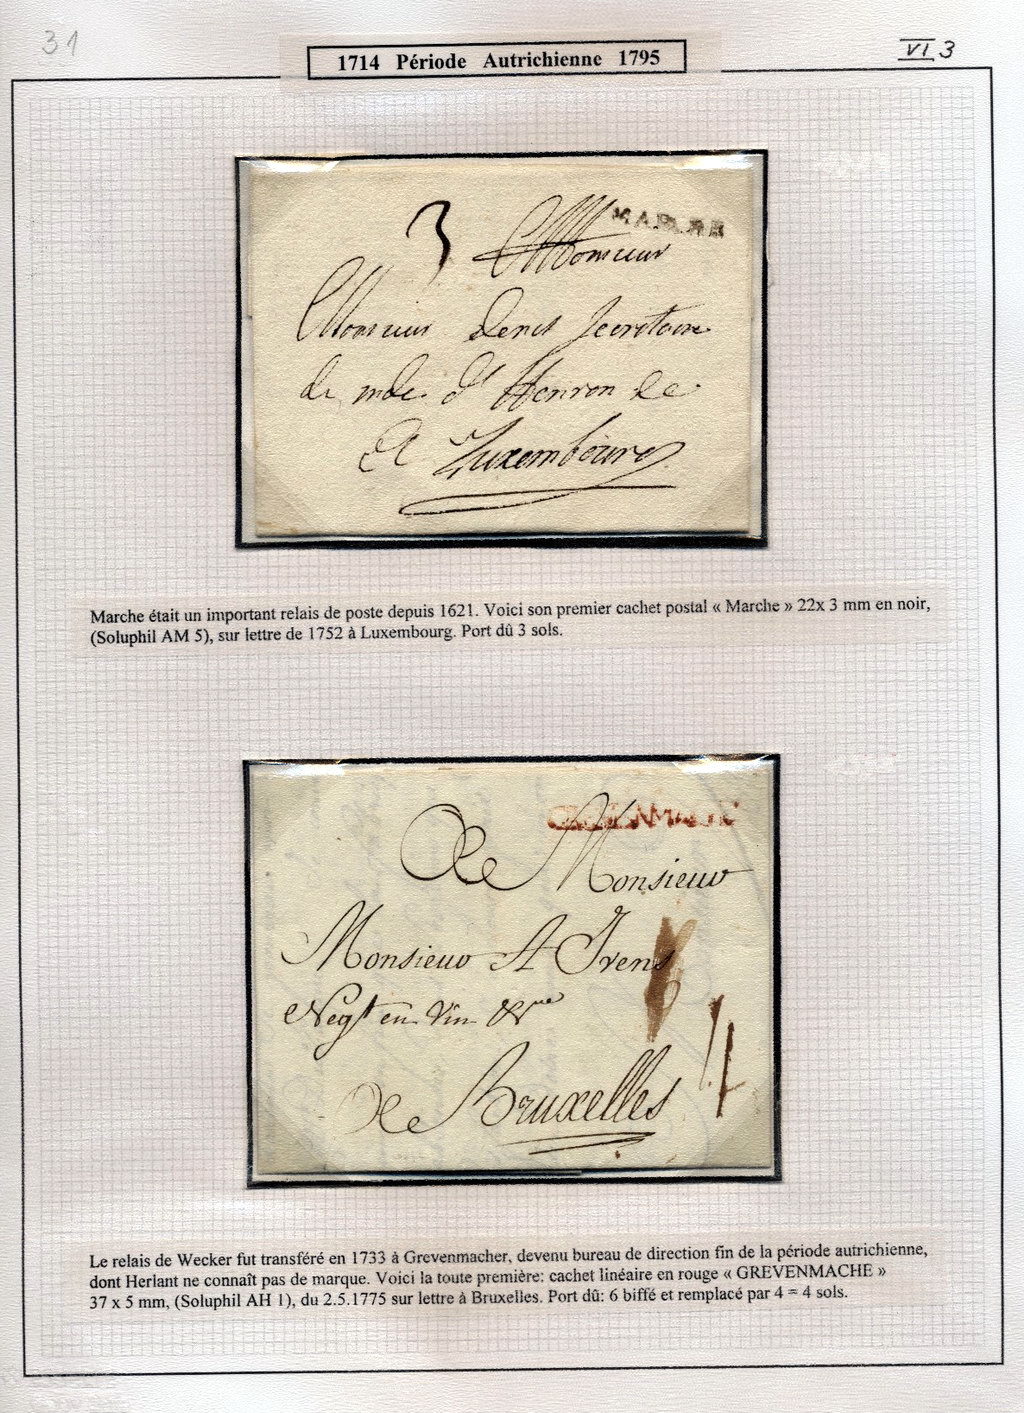 31
VI 3
1714 Période Autrichienne 1795
3
Monsieur
Monsieur denis secretaire
de mde d'
A Luxembourg
Marche était un important relais de poste depuis 1621. Voici son premier cachet postal « Marche » 22x 3 mm en noir,
(Soluphil AM 5), sur lettre de 1752 à Luxembourg. Port dû 3 sols.
Monsieur
Monsieur A Ivens
Negt en Vin &
Bruxelles
4
Le relais de Wecker fut transféré en 1733 à Grevenmacher, devenu bureau de direction fin de la période autrichienne,
dont Herlant ne connaît pas de marque. Voici la toute première: cachet linéaire en rouge « GREVENMACHE »
37 x 5 mm, (Soluphil AH 1), du 2.5.1775 sur lettre à Bruxelles. Port dû: 6 biffé et remplacé par 4 = 4 sols.